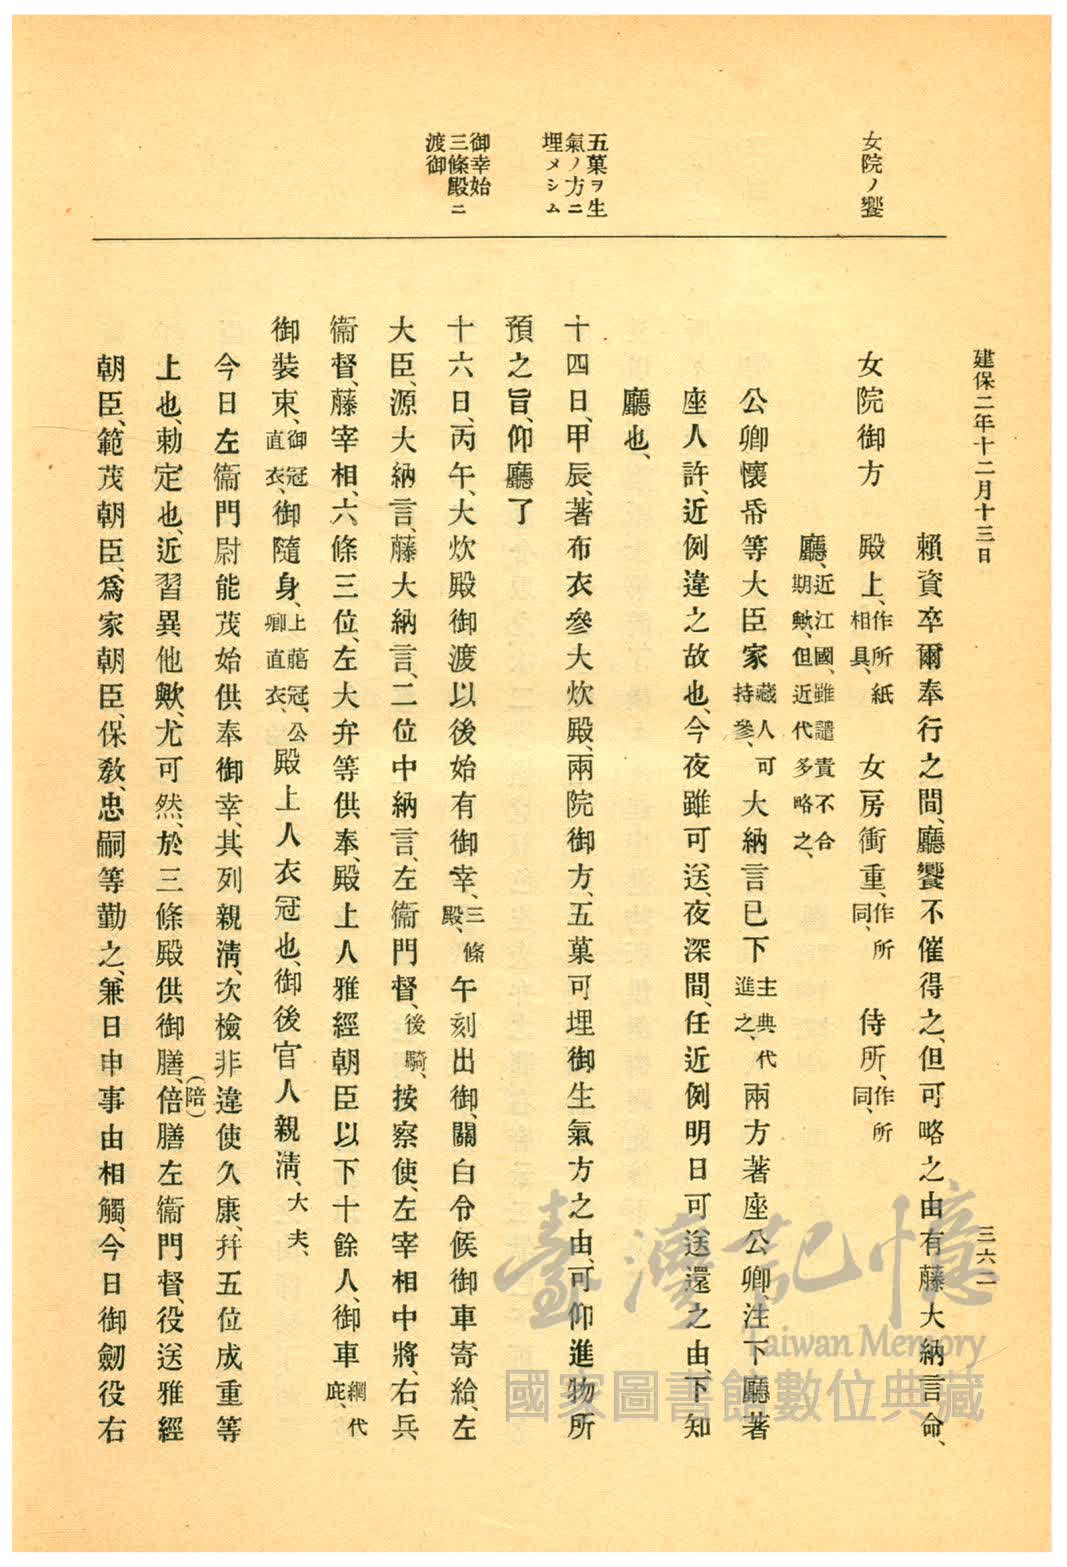 建保二年十二月十三日
三六二
女院ノ饗
五菓ヲ生
氣ノ方ニ
埋メシム
御幸始
三條殿ニ
渡御
賴資卒爾奉行之間、廳饗不催得之、但可略之由有藤大納言命、
女院御方　殿上、作所紙相具、　女房衝重、作所同、　侍所、作所同、
廳、近江國、雖譴責不合期歟、但近代多略之、
公卿懷帋等大臣家藏人可持參、大納言已下主典代進之、兩方著座公卿、注下廳著
座人許、近例違之故也、今夜雖可送、夜深間、任近例明日可送還之由、下知
廳也、
十四日、甲辰、著布衣參大炊殿、兩院御方、五菓可埋御生氣方之由、可仰進物所
預之旨、仰廳了
十六日、丙午、大炊殿御渡以後始有御幸、三條殿、午刻出御、關白令候御車寄給、左
大臣、源大納言、藤大納言、二位中納言、左衞門督、後騎、按察使、左宰相中將、右兵
衞督、藤宰相、六條三位、左大弁等供奉、殿上人雅經朝臣以下十餘人、御車網代庇、
御裝束、御冠直衣、御隨身、上﨟冠、公卿直衣、殿上人衣冠也、御後官人親淸、大夫、
今日左衞門尉能茂始供奉御幸、其列親淸、次檢非違使久康、幷五位成重等
上也、勅定也、近習異他歟、尤可然、於三條殿供御膳、倍(陪)膳左衞門督、役送雅經
朝臣、範茂朝臣、爲家朝臣、保敎、忠嗣等勤之、兼日申事由相觸、今日御劒役右
臺灣記憶
Taiwan Memory
國家圖書館數位典藏